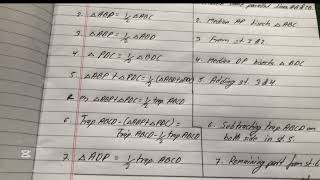 2. △ABP = ½ △ABC
2. Median AP bisects △ABC
3. △ABP = ½ △ABD
3. From st. 1 & 2
4. △PDC = ½ △BDC
4. Median DP bisects △BDC
5. △ABP + △PDC = ½ (△ABD + △BDC)
5. Adding st. 3 & 4
△ABP + △PDC = ½ trap. ABCD
6. Trap. ABCD - (△ABP + △PDC) =
Trap. ABCD - ½ trap. ABCD
6. Subtracting trap. ABCD on
both side in st 5.
7. △ADP = ½ trap. ABCD
7. Remaining part from st. 6